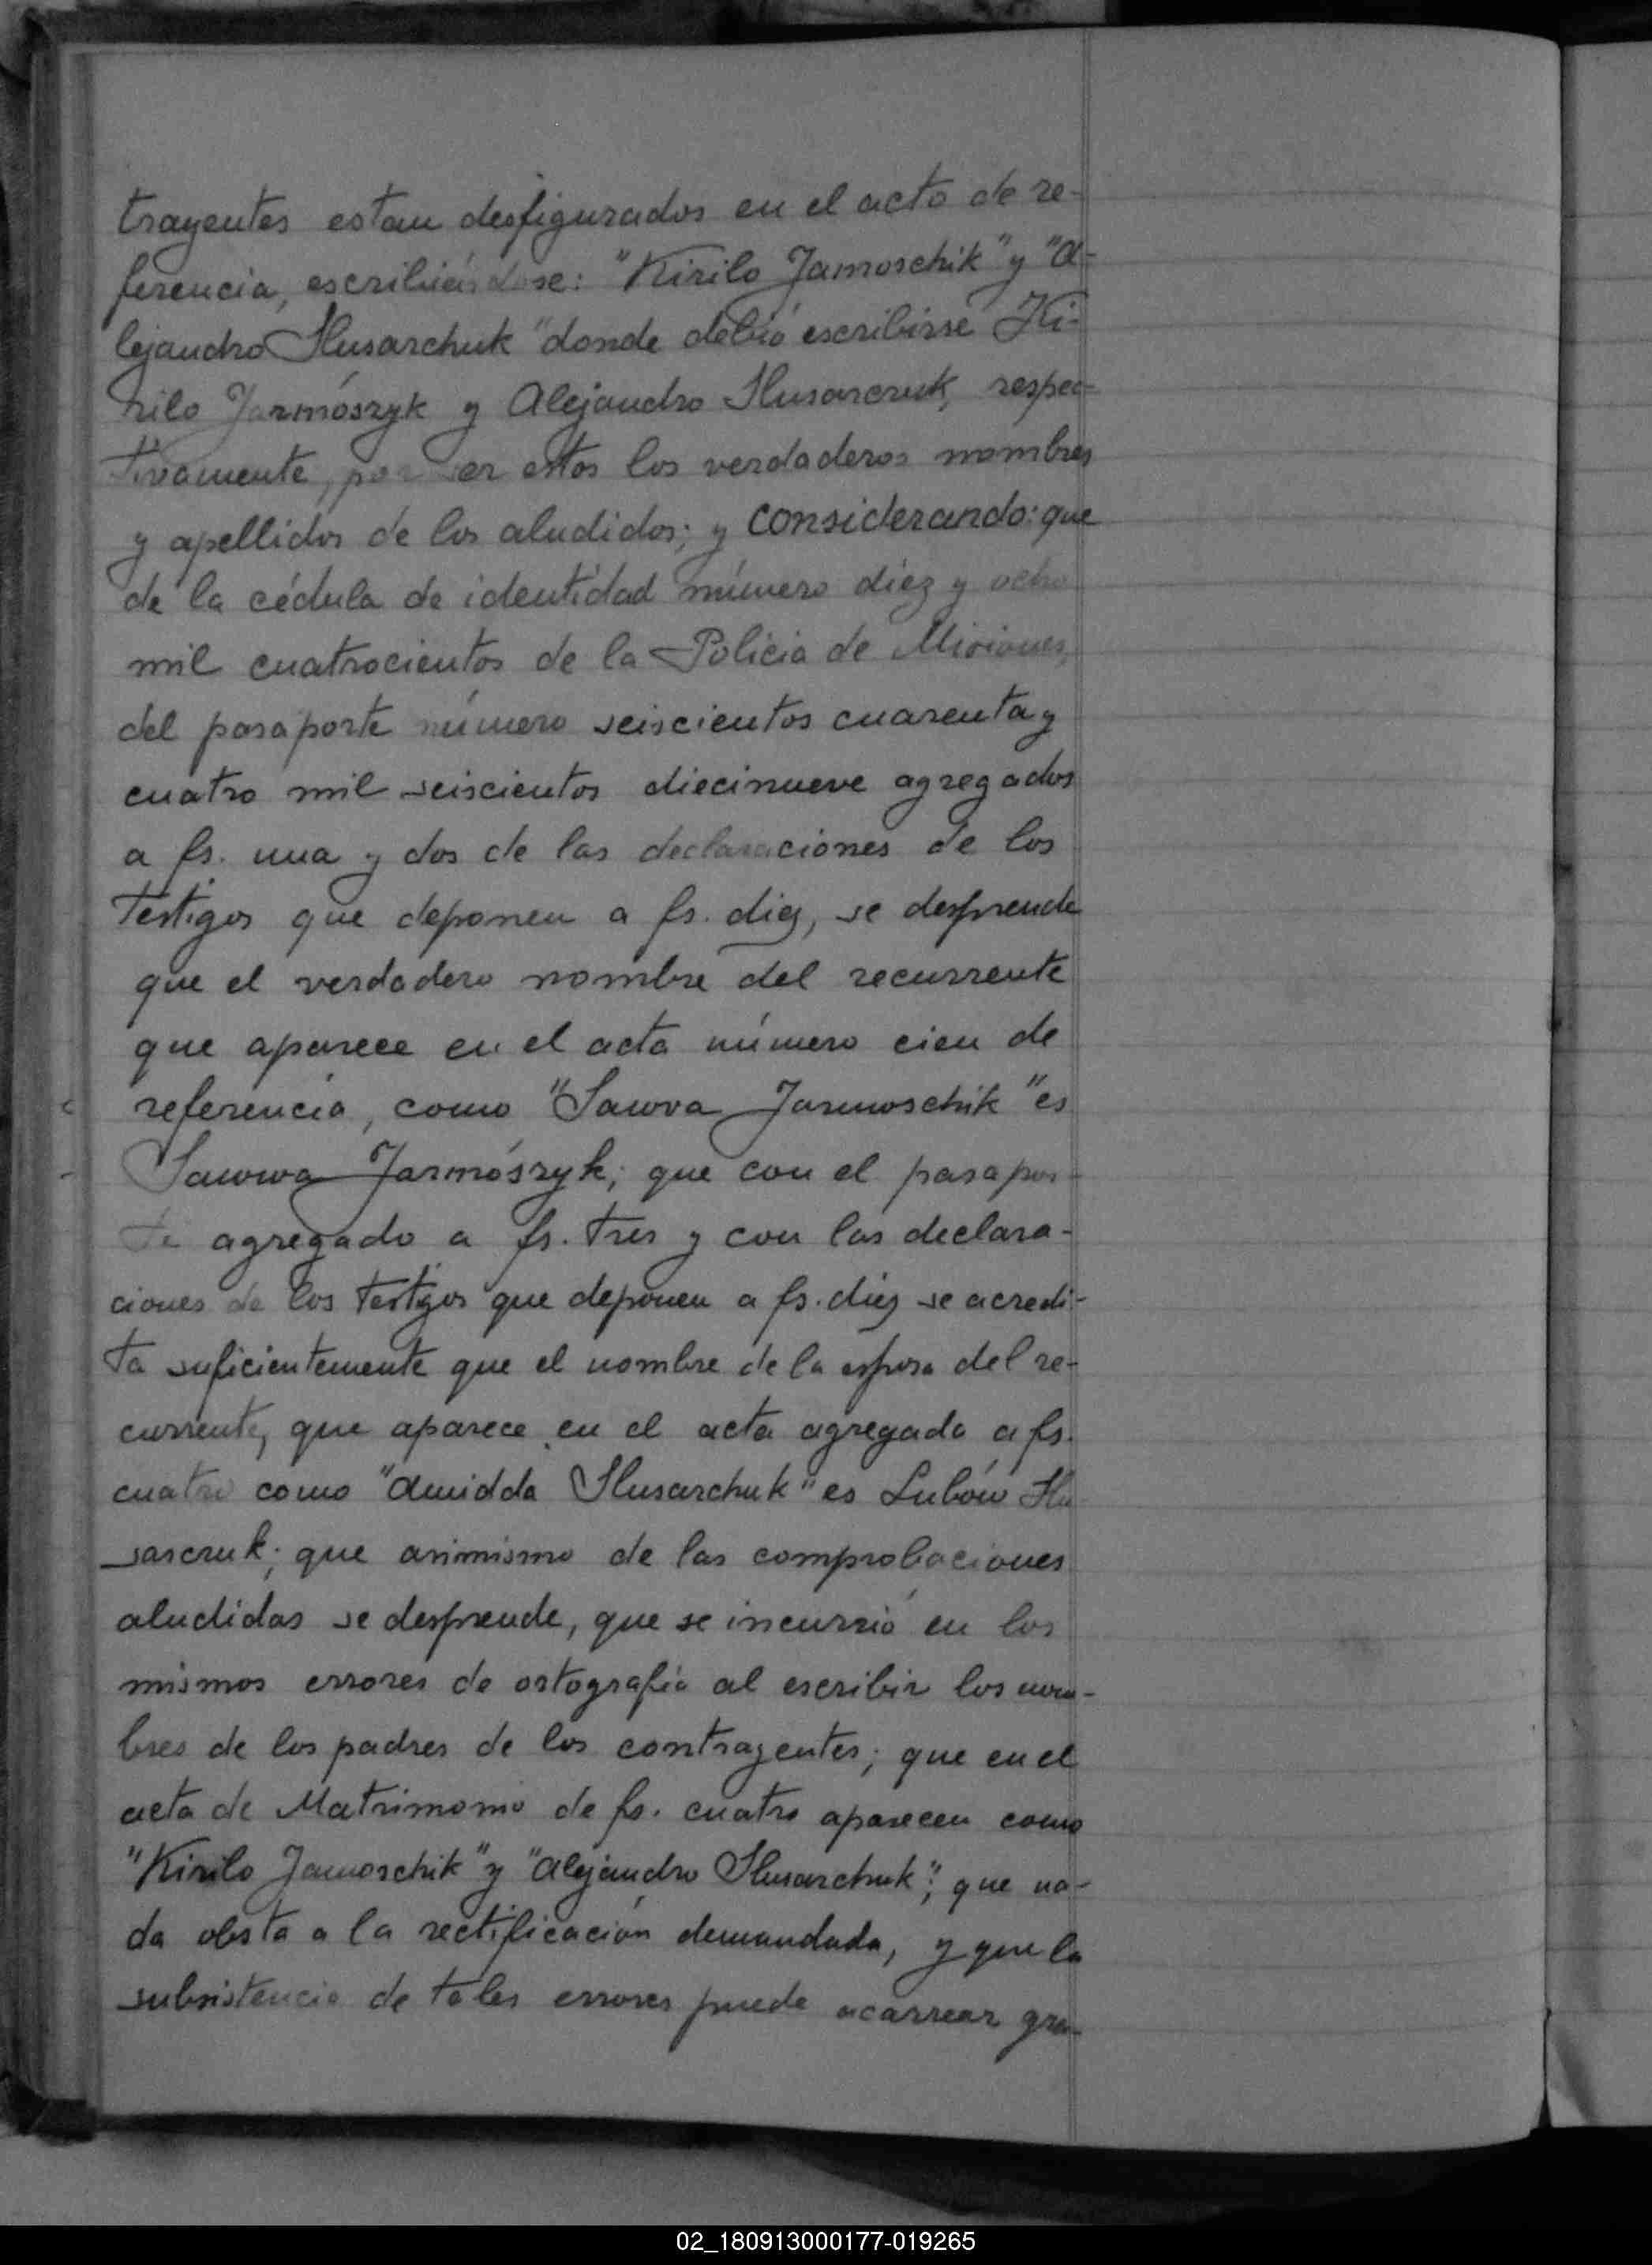 trayentes estan desfigurados en el acto de re-
ferencia, escribiéndose: "Kirilo Jamoschik" y "A-
lejandro Slusarchuk" donde debió escribirse Ki-
rilo Jarmószyk y Alejandro Slusarczuk, respec-
tivamente, por ser estos los verdaderos nombres
y apellidos de los aludidos; y considerando: que
de la cédula de identidad número diez y ocho
mil cuatrocientos de la Policia de Misiones,
del pasaporte número seiscientos cuarenta y
cuatro mil seiscientos diecinueve agregados
a fs. una y dos de las declaraciones de los
testigos que deponen a fs. diez, se desprende
que el verdadero nombre del recurrente
que aparece en el acta número cien de
referencia, como "Sawva Jarmoschik" es
Sawwa Jarmószyk; que con el pasapor-
te agregado a fs. tres y con las declara-
ciones de los testigos que deponen a fs. diez se acredi-
ta suficientemente que el nombre de la esposa del re-
currente, que aparece en el acta agregada a fs.
cuatro como "Amidda Slusarchuk" es Lubów Slu
sarczuk; que asimismo de las comprobaciones
aludidas se desprende, que se incurrió en los
mismos errores de ortografía al escribir los nom-
bres de los padres de los contrayentes; que en el
acta de Matrimonio de fs. cuatro aparecen como
"Kirilo Jamoschik" y "Alejandro Slusarchuk"; que na-
da obsta a la rectificación demandada, y que la
subsistencia de tales errores puede acarrear gra-
02_180913000177-019265